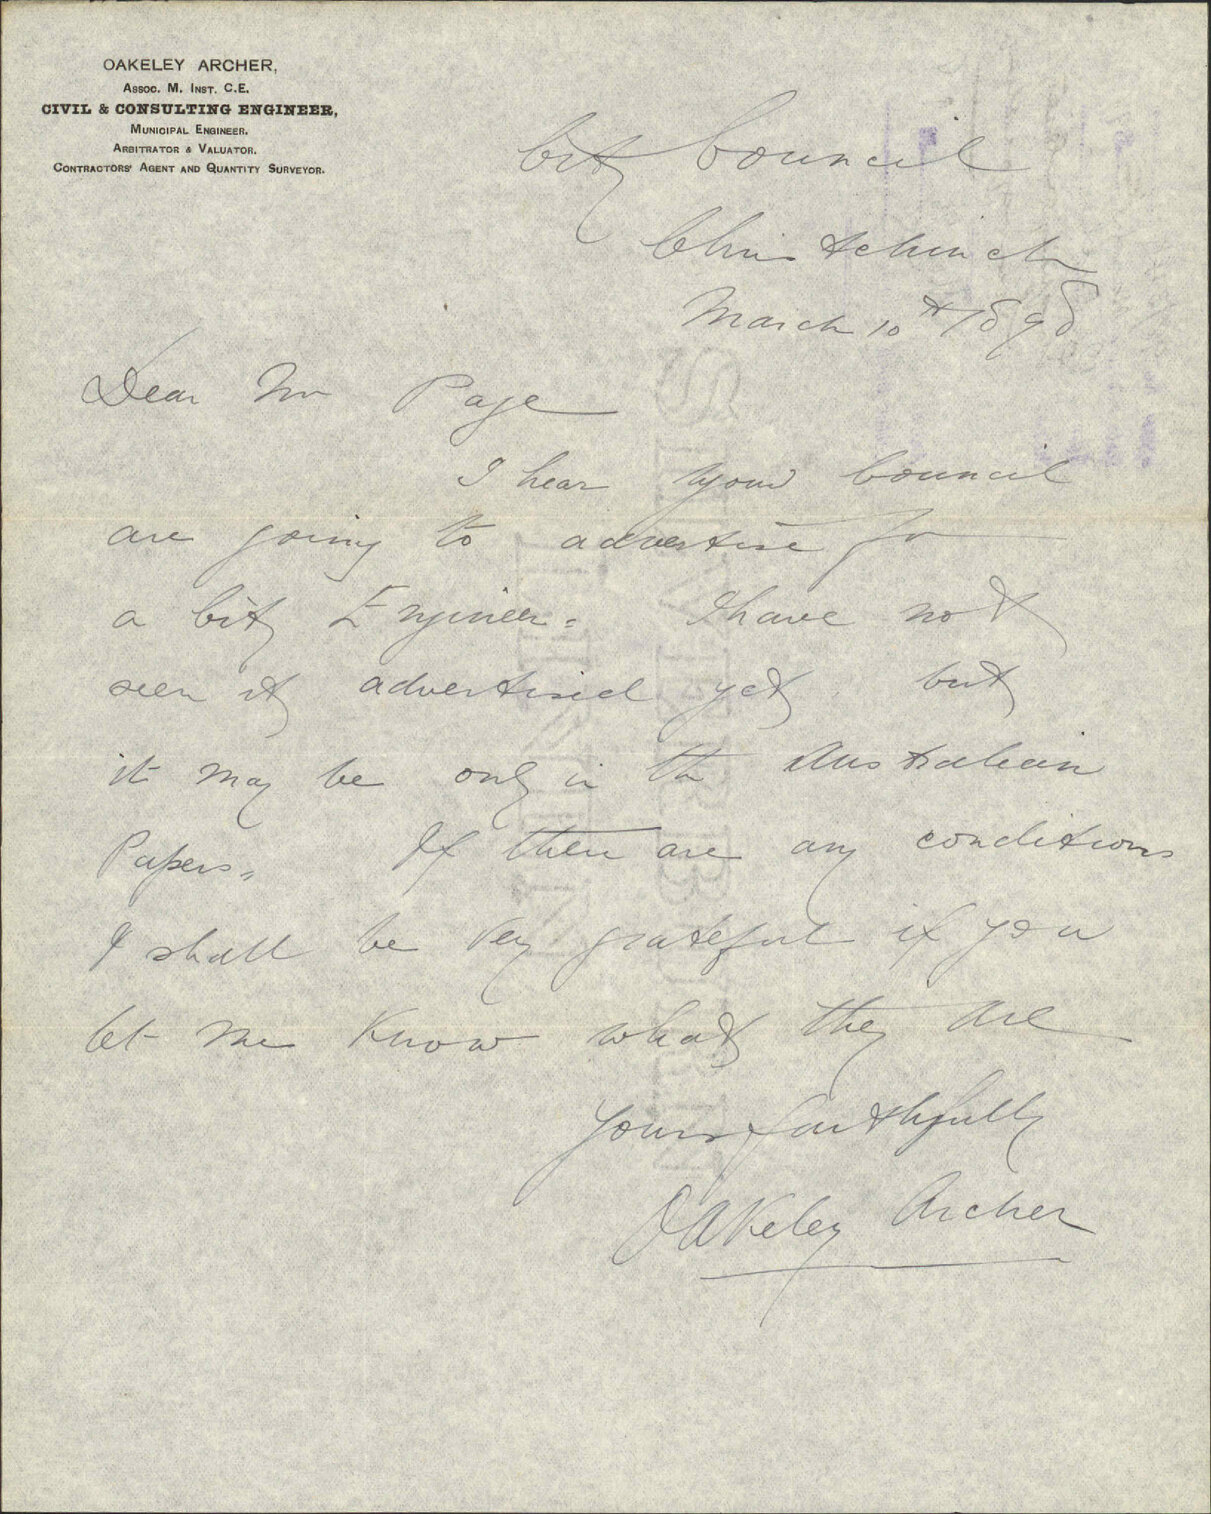 OAKELEY ARCHER,
ASSOC. M. INST. C.E.
CIVIL & CONSULTING ENGINEER,
MUNICIPAL ENGINEER.
ARBITRATOR & VALUATOR.
CONTRACTORS' AGENT AND QUANTITY SURVEYOR.
City Council
Christchurch
March 10th 1898
Dear Mr Page
I hear your Council
are going to advertise for
a City Engineer. I have not
seen it advertised yet but
it may be only in the Australian
Papers. If there are any conditions
I shall be very grateful if you
let me know what they are
Yours faithfully
Oakeley Archer